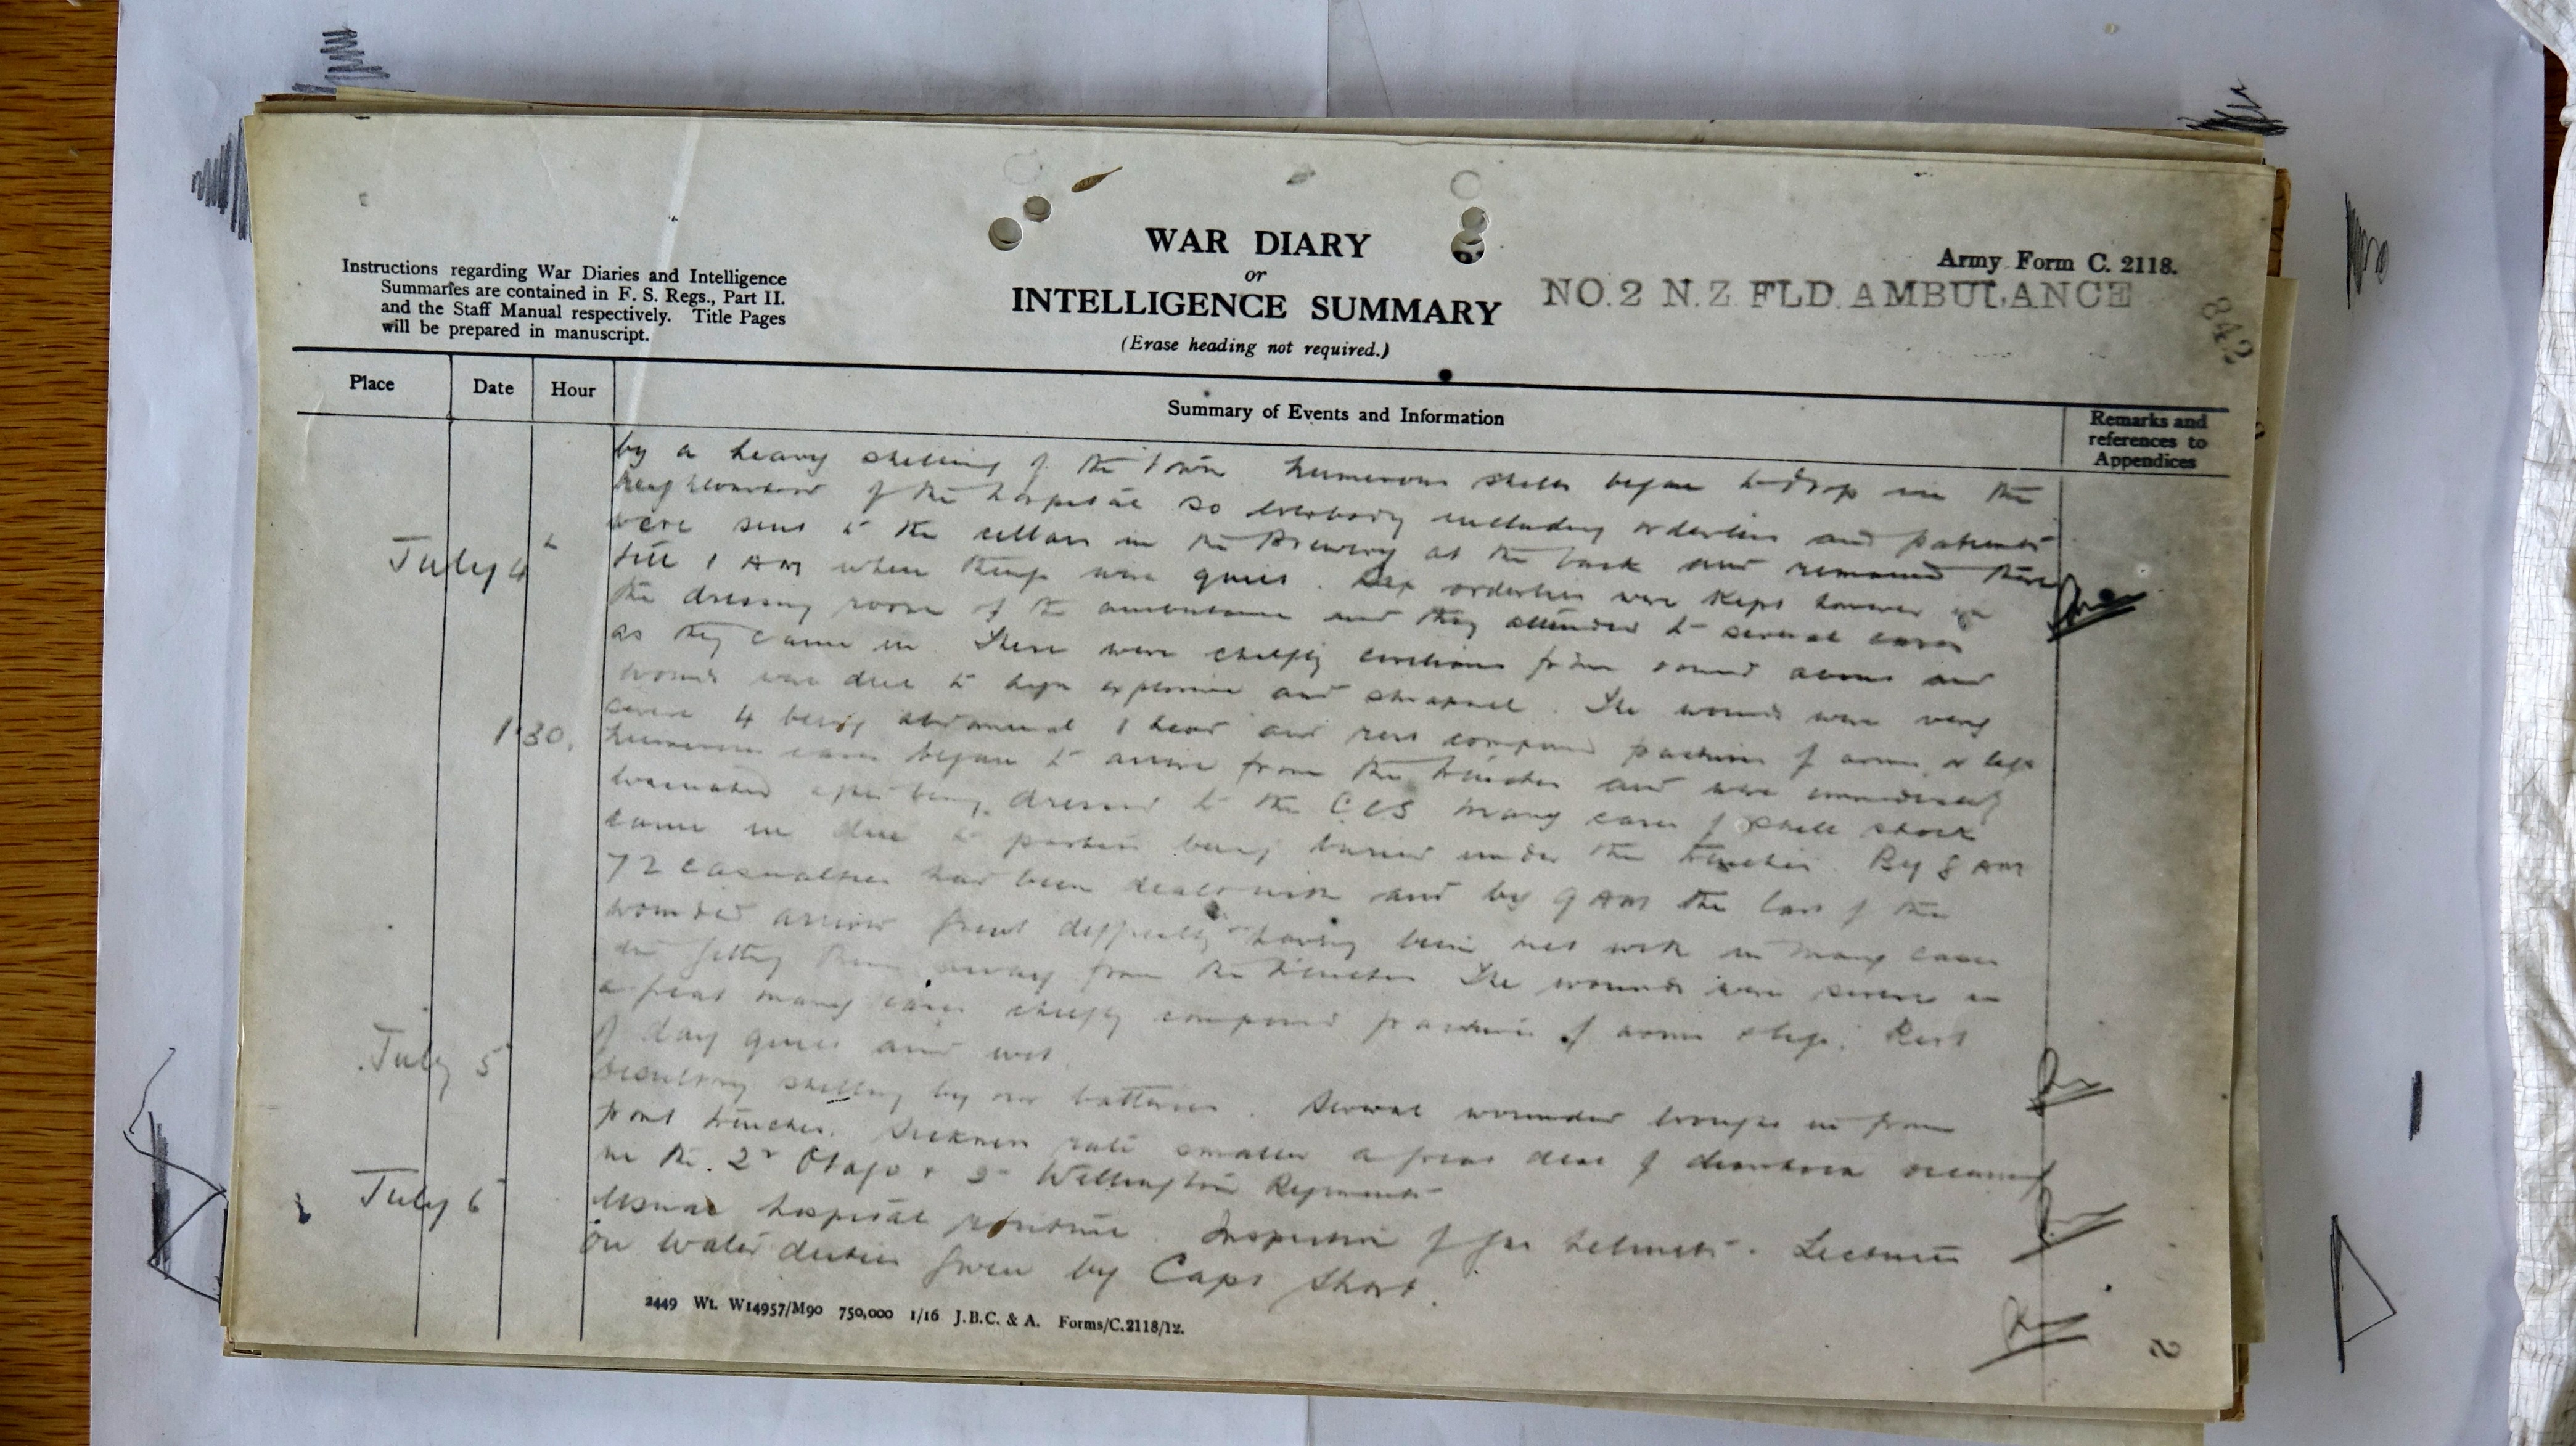 Army Form C. 2118.
WAR DIARY
or
INTELLIGENCE SUMMARY
(Erase heading not required.)
NO. 2 N.Z. FLD. AMBULANCE
842
Instructions regarding War Diaries and Intelligence
Summaries are contained in F. S. Regs., Part II.
and the Staff Manual respectively. Title Pages
will be prepared in manuscript.
Place Date Hour Summary of Events and Information Remarks and
references to
Appendices
by a heavy shelling of the town numerous shells began to drop in the
neighbourhood of the hospital so everbody including orderlies and patients
were sent to the cellars in the Brewery at the back and remained there
July 4 till 1 AM when things were quiet. Six orderlies were kept however in
the dressing room of the ambulance and they attended to several cases
as they came in. These were chiefly civilians from round about and
wounds were due to high explosive and shrapnel. The wounds were very
severe 4 being abdominal 1 head and rest compound fractures of arms or legs
1.30. Numerous cases began to arrive from the trenches and were immediately
evacuated after being dressed to the CCS Many cases of shell shock
came in due to parties being buried under the trenches. By 8 AM
72 casualties had been dealt with and by 9 AM the last of the
wounded arrived great difficulty having been met with in many cases
in getting them away from the trenches The wounds were severe in
a great many cases chiefly compound fractures of arms & legs. Rest
of day quiet and wet.
July 5 Desultory shelling by our batteries. Several wounded brought in from
front trenches. Sickness rate smaller a great deal of diarrhoea
in the 2nd Otago & 2nd Wellington Regiments
July 6 Usual hospital routine. Inspection of gas helmets. Lectures
on water duties given by Capt Short.
2449 Wt. W14957/M90 750,000 1/16 J.B.C. & A. Forms/C.2118/12.
2